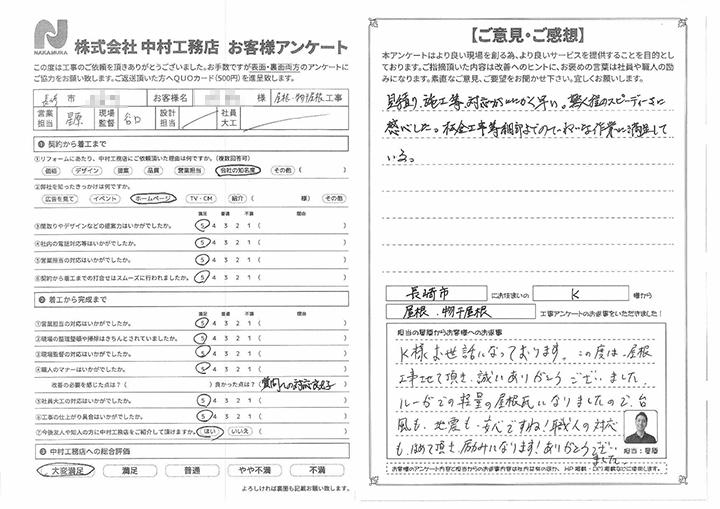 NAKAMURA
株式会社 中村工務店 お客様アンケート
この度は工事のご依頼を頂きありがとうございました。お手数ですが表面・裏面両方のアンケートに
ご協力をお願い致します。ご返送頂いた方へQUOカード(500円)を進呈致します。
長崎 市 お客様名 様 屋根・物干屋根 工事
営業担当 現場監督 谷口 設計担当 社員大工
❶ 契約から着工まで
①リフォームにあたり、中村工務店にご依頼頂いた理由は何ですか。(複数回答可)
価格 デザイン 提案 品質 営業担当 会社の知名度 その他( )
②弊社を知ったきっかけは何ですか。
広告を見て イベント ホームページ TV・CM 紹介( 様) その他
満足 普通 不満 理由
③間取りやデザインなどの提案力はいかがでしたか。 5 4 3 2 1 ( )
④社内の電話対応等はいかがでしたか。 5 4 3 2 1 ( )
⑤営業担当の対応はいかがでしたか。 5 4 3 2 1 ( )
⑥契約から着工までの打合せはスムーズに行われましたか。 5 4 3 2 1 ( )
❷ 着工から完成まで
満足 普通 不満 理由
①営業担当の対応はいかがでしたか。 5 4 3 2 1 ( )
②現場の整理整頓や掃除はきちんとされていましたか。 5 4 3 2 1 ( )
③現場監督の対応はいかがでしたか。 5 4 3 2 1 ( )
④職人のマナーはいかがでしたか。 5 4 3 2 1 ( )
改善の必要を感じた点は?( ) 良かった点は?(質問への対応良好)
⑤社員大工の対応はいかがでしたか。 5 4 3 2 1 ( )
⑥工事の仕上がり具合はいかがでしたか。 5 4 3 2 1 ( )
⑦今後友人や知人の方に中村工務店をご紹介して頂けますか。 はい いいえ ( )
❸ 中村工務店への総合評価
大変満足 満足 普通 やや不満 不満
よろしければ裏面も記載お願い致します。
【ご意見・ご感想】
本アンケートはより良い現場を創る為、より良いサービスを提供することを目的と
しております。ご指摘頂いた内容は改善へのヒントに、お褒めの言葉は社員や職人の励
みになります。率直なご意見、ご要望をお聞かせ下さい。宜しくお願い致します。
見積り、施工等、対応がいつも早い。職人様のスピーディーさに
感心した。板金工事等細部までのていねいな作業に満足して
いる。
長崎市 にお住まいの K 様から
屋根・物干屋根 工事アンケートのお返事をいただきました!
担当の星原からお客様へのお返事
K様お世話になっております。この度は、屋根
工事させて頂き、誠にありがとうございました。
ルーガでの軽量の屋根瓦になりましたので、台
風も、地震も安心ですね!職人の対応
もほめて頂き励みになります!ありがとうござい
ました。
担当:星原
お客様のアンケート内容と担当からのお返事内容は社内は有のほか、HP掲載・DM掲載などに使用します。